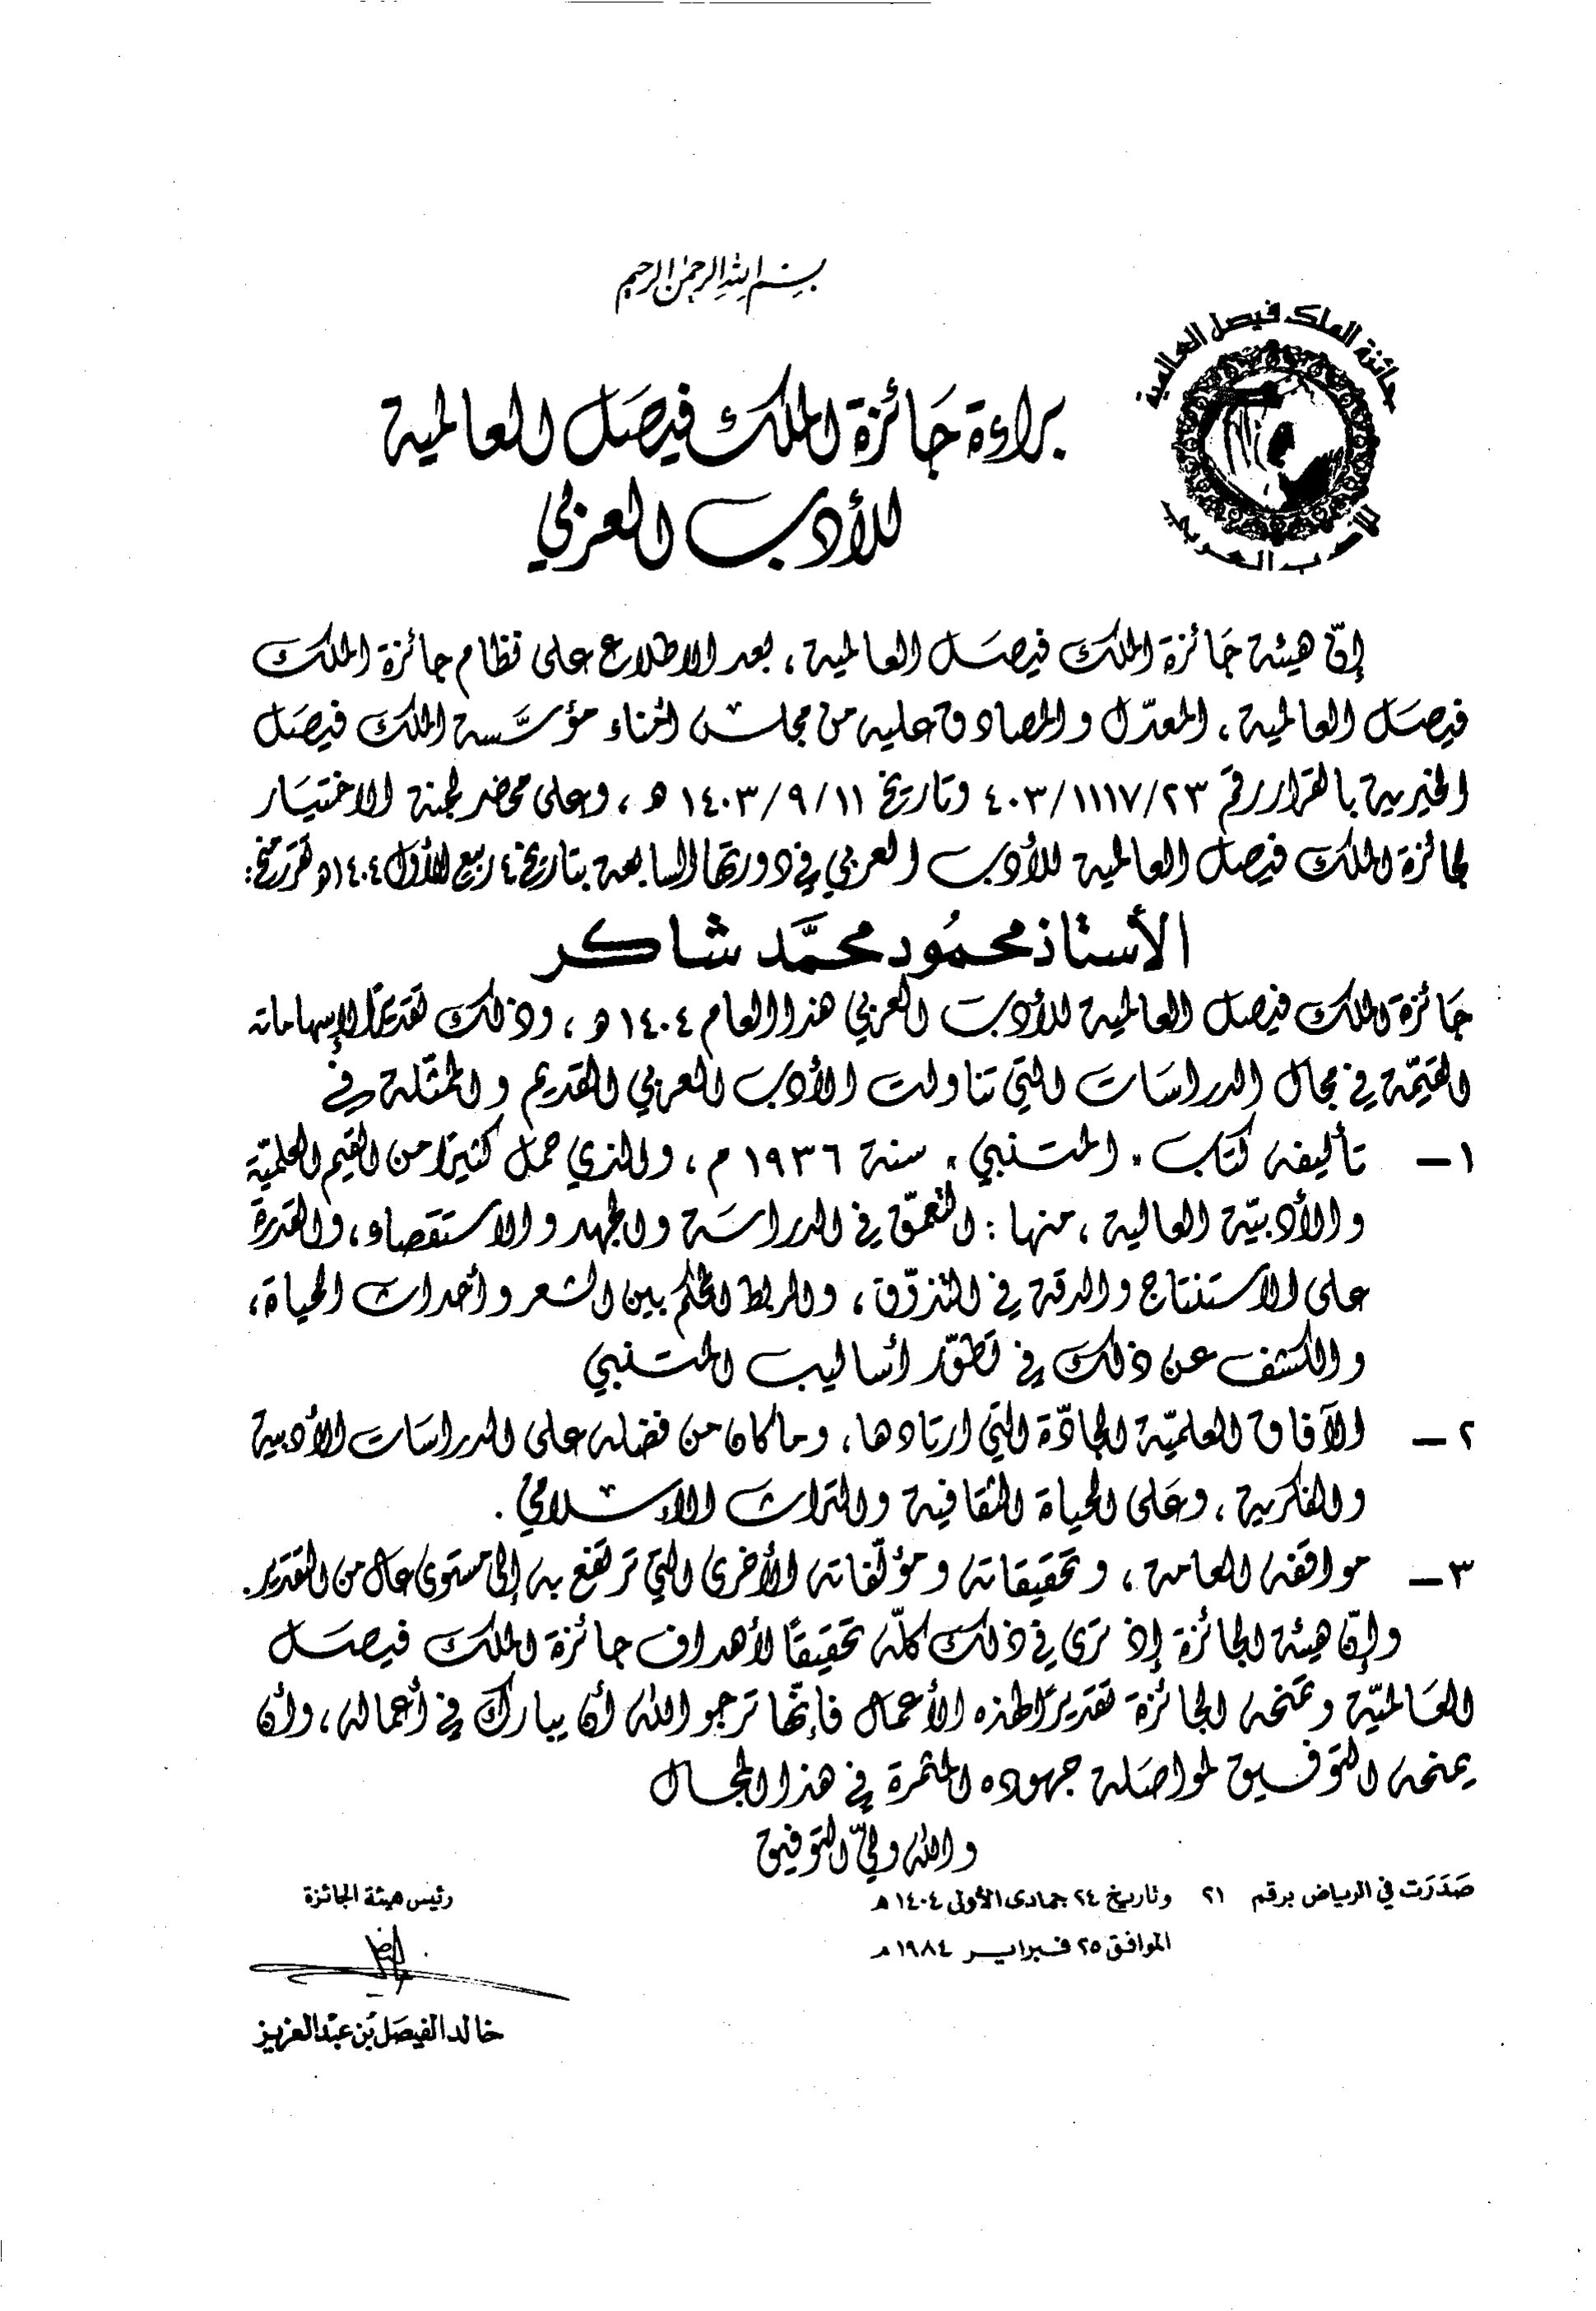 بسم الله الرحمن الرحيم
جائزة الملك فيصل العالمية
للأدب العربي
براءة جَائزة الملك فيصَل العالمية
للأدب العَزبي
إنّ هيئة جَائزة الملك فيصَل العالمية ، بعد الاطلاع على نظام جائزة الملك
فيصَل العالمية ، المعدّل والمصادق عليه من مجلس امناء مؤسَّسة الملك فيصَل
الخيرية بالقرار رقم ٤٠٣/١١١٧/٢٣ وتاريخ ١٤٠٣/٩/١١ هـ ، وعلى محضر لجنة الاختيَار
لجائزة الملك فيصل العالمية للأدب العربي في دورتها السابعة بتاريخ ٤ ربيع الأول ١٤٠٤هـ تقرر منح :
الأستاذ محمُود محمَّد شاكر
جَائزة الملك فيصل العالمية للأدب العربي هذا العام ١٤٠٤ هـ ، وذلك تقديرًا لإسهاماته
القيّمة في مجال الدراسَات التي تناولت الأدب العربي القديم والممثّلة في
١ — تأليفه كتاب " المتنبي " سنة ١٩٣٦ م ، والذي حمل كثيرًا من القيم العلميّة
والأدبيّة العالية ، منها : التعمّق في الدراسَة والجهد والاستقصاء ، والقدرة
على الاستنتاج والدقة في التذوّق ، والربط المحكم بين الشعر وأحداث الحياة ،
والكشف عن ذلك في تطوّر أساليب المتنبي
٢ — الآفاق العلميّة الجادّة التي ارتادها ، وما كان من فضله على الدراسَات الأدبية
والفكرية ، وعَلى الحياة الثقافية والتراث الإسلامي .
٣ — مواقفه العامة ، وتحقيقاته ومؤلّفاته الأخرى التي ترتفع به إلى مستوى عال من التقدير .
وإنّ هيئة الجائزة إذ ترى في ذلك كلّه تحقيقًا لأهداف جائزة الملك فيصَل
العَالميّة وتمنحه الجائزة تقديرًا لهذه الأعمال فإنّها ترجو الله أن يبارك في أعماله ، وأن
يمنحه التوفيق لمواصَلة جهوده المثمرة في هذا المجال
والله وليّ التوفيق
صَدَرَت في الرياض برقم ٢١ وتاريخ ٢٤ جمادى الأولى ١٤٠٤هـ
الموافق ٢٥ فبراير ١٩٨٤م
رئيس هيئة الجائزة
خالد الفيصَل بن عبْد العزيز